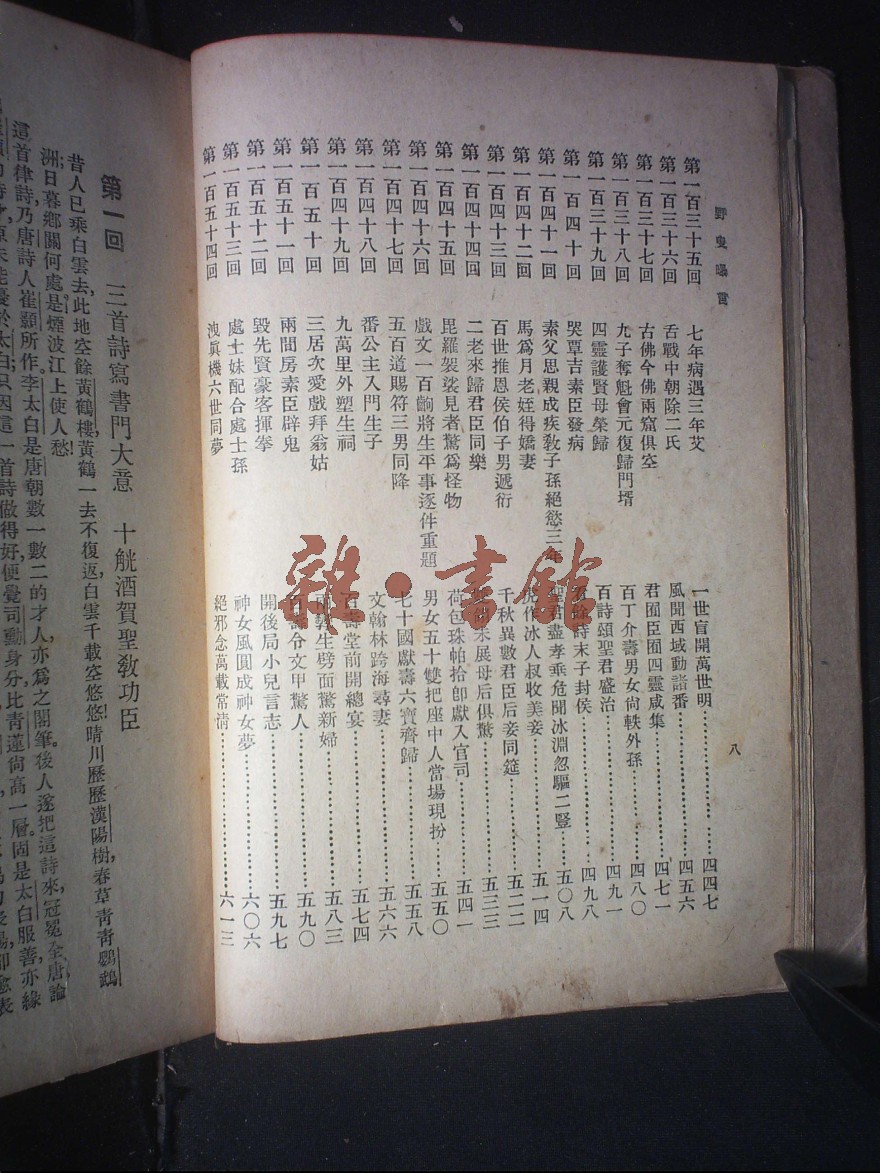 野叟曝言
八
第一百三十五回 七年病遇三年艾 一世盲開萬世明 四四七
第一百三十六回 舌戰中朝除二氏 風聞西域動諧番 四五六
第一百三十七回 古佛今佛兩窟俱空 君囿臣囿四靈咸集 四七一
第一百三十八回 九子奪魁會元復歸門壻 百丁介壽男女尙軼外孫 四八〇
第一百三十九回 四靈護賢母榮歸 百詩頌聖君盛治 四九一
第一百四十回 哭覃吉素臣發病 餘詩末子封侯 四九八
第一百四十一回 素父思親成疾敎子孫絕慾三年 聖君盡孝垂危聞冰淵忽驅二豎 五〇八
第一百四十二回 馬爲月老姪得嬌妻 虎作冰人叔收美妾 五一四
第一百四十三回 百世推恩侯伯子男遞衍 千秋異數君臣后妾同筵 五二二
第一百四十四回 二老來歸君臣同樂 未展母后俱驚 五三三
第一百四十五回 毘羅袈裟見者驚爲怪物 荷包珠帕拾卽獻入官司 五四一
第一百四十六回 戲文一百齣將生平事逐件重題 男女五十雙把座中人當場現扮 五五〇
第一百四十七回 五百道賜符三男同降 七十國獻壽六寶齊歸 五五八
第一百四十八回 番公主入門生子 文翰林跨海尋妻 五六六
第一百四十九回 九萬里外塑生祠 百壽堂前開總宴 五七四
第一百五十回 三居次愛戲拜翁姑 兩孽生劈面驚新婦 五八三
第一百五十一回 兩間房素臣辟鬼 百壽令文甲驚人 五九〇
第一百五十二回 毀先賢豪客揮拳 開後局小兒言志 五九七
第一百五十三回 處士妹配合處士孫 神女風圓成神女夢 六〇六
第一百五十四回 洩眞機六世同夢 絕邪念萬載常淸 六一三
第一回 三首詩寫書門大意 十觥酒賀聖敎功臣
昔人已乘白雲去,此地空餘黃鶴樓,黃鶴一去不復返,白雲千載空悠悠!晴川歷歷漢陽樹,春草靑靑鸚鵡
洲;日暮鄕關何處是,煙波江上使人愁
這首律詩,乃唐詩人崔顥所作,李太白是唐朝數一數二的才人,亦爲之閣筆。後人遂把這詩來,冠冕全唐,論
只因這一首詩做得好,便覺司勳身分,比靑蓮尙高一層,固是太白服善,亦緣